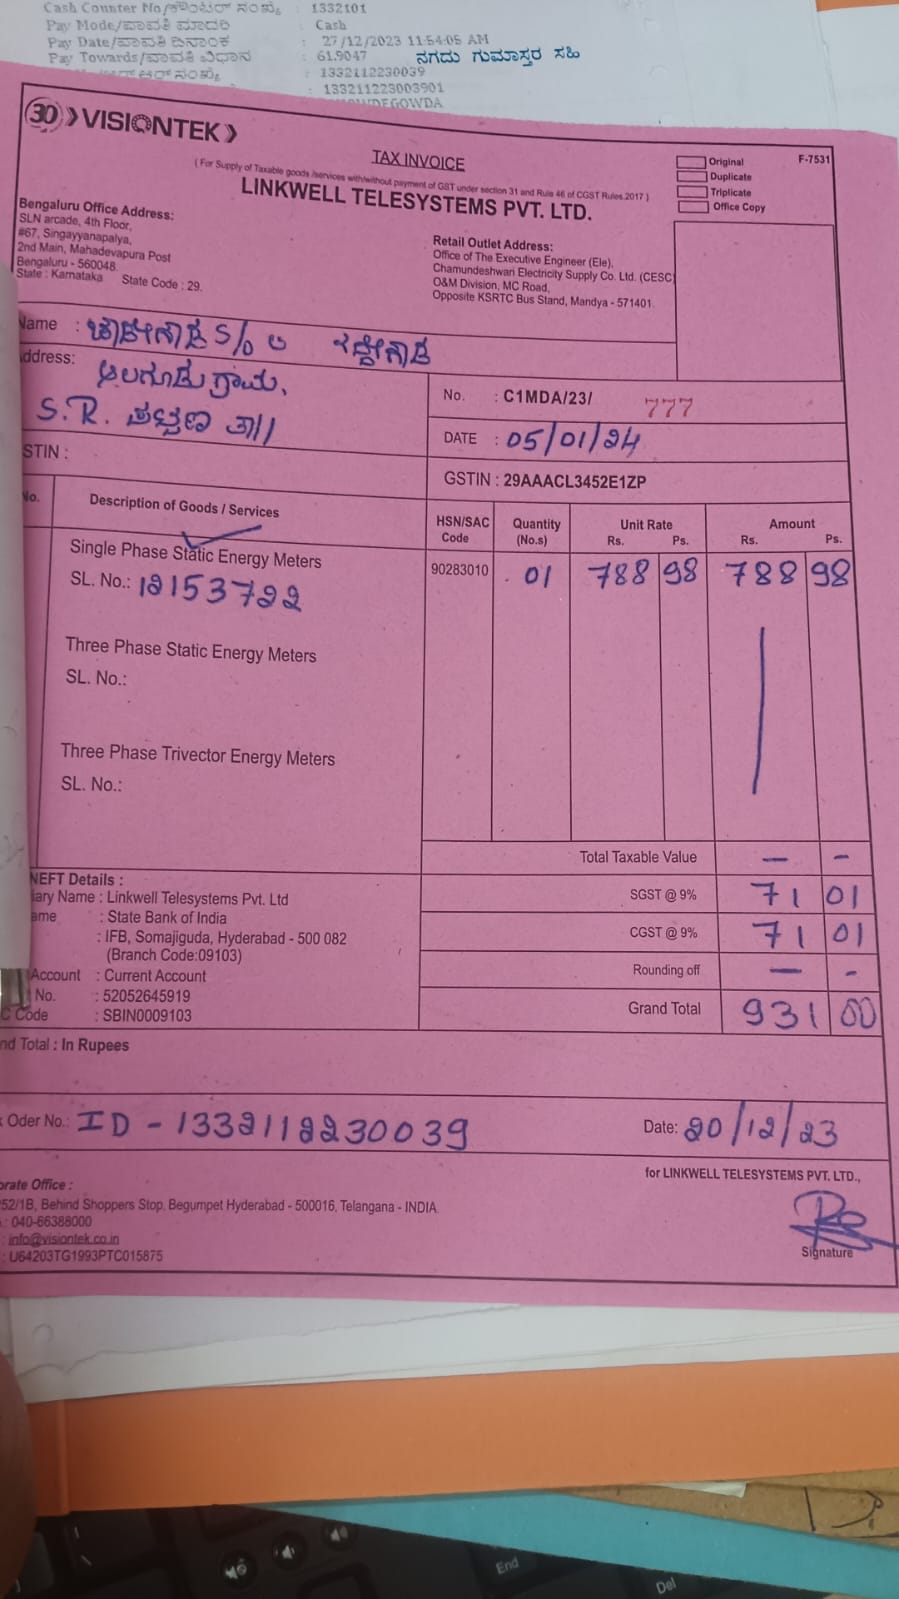 Cash Counter No/ಕೌಂಟರ್ ಸಂಖ್ಯೆ : 1332101
Pay Mode/ಪಾವತಿ ಮಾದರಿ : Cash
Pay Date/ಪಾವತಿ ದಿನಾಂಕ : 27/12/2023 11:54:05 AM
Pay Towards/ಪಾವತಿ ವಿಧಾನ : 61.9047 ನಗದು ಗುಮಾಸ್ತರ ಸಹಿ
ಆರ್.ಆರ್ ಸಂಖ್ಯೆ : 1332112230039
: 133211223003901
30 VISIONTEK
TAX INVOICE
( For Supply of Taxable goods /services with/without payment of GST under section 31 and Rule 46 of CGST Rules.2017 )
LINKWELL TELESYSTEMS PVT. LTD.
Original
Duplicate
Triplicate
Office Copy
F-7531
Bengaluru Office Address:
SLN arcade, 4th Floor,
#67, Singayyanapalya,
2nd Main, Mahadevapura Post
Bengaluru - 560048.
State : Karnataka State Code : 29.
Retail Outlet Address:
Office of The Executive Engineer (Ele),
Chamundeshwari Electricity Supply Co. Ltd. (CESC
O&M Division, MC Road,
Opposite KSRTC Bus Stand, Mandya - 571401.
Name : S/o
Address: ಗ್ರಾಮ,
S.R. ಪಟ್ಟಣ ತಾ||
STIN :
No. : C1MDA/23/ 777
DATE : 05/01/24
GSTIN : 29AAACL3452E1ZP
No. Description of Goods / Services HSN/SAC Code Quantity (No.s) Unit Rate Rs. Ps. Amount Rs. Ps.
Single Phase Static Energy Meters 90283010 01 788 98 788 98
SL. No.: 12153722
Three Phase Static Energy Meters
SL. No.:
Three Phase Trivector Energy Meters
SL. No.:
Total Taxable Value — -
SGST @ 9% 71 01
CGST @ 9% 71 01
Rounding off — -
Grand Total 931 00
NEFT Details :
iary Name : Linkwell Telesystems Pvt. Ltd
ame : State Bank of India
: IFB, Somajiguda, Hyderabad - 500 082
(Branch Code:09103)
Account : Current Account
No. : 52052645919
C Code : SBIN0009103
nd Total : In Rupees
Oder No.: ID - 1332112230039 Date: 20/12/23
for LINKWELL TELESYSTEMS PVT. LTD.,
orate Office :
52/1B, Behind Shoppers Stop, Begumpet Hyderabad - 500016, Telangana - INDIA.
: 040-66388000
: info@visiontek.co.in
: U64203TG1993PTC015875
Signature
End
Del